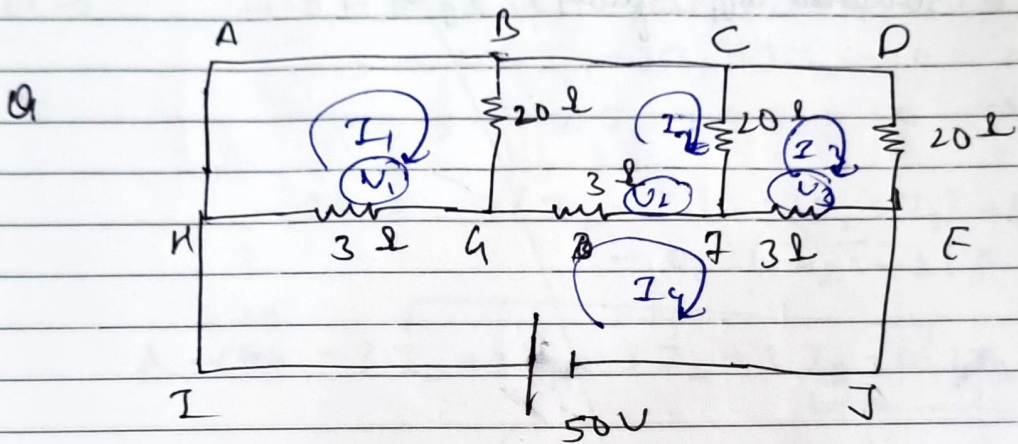 A B C D
Q
I₁ 20 Ω I₂ 20 Ω I₃ 20 Ω
V₁ 3 Ω V₂ V₃
H 3 Ω G F 3 Ω E
I₄
I J
50V